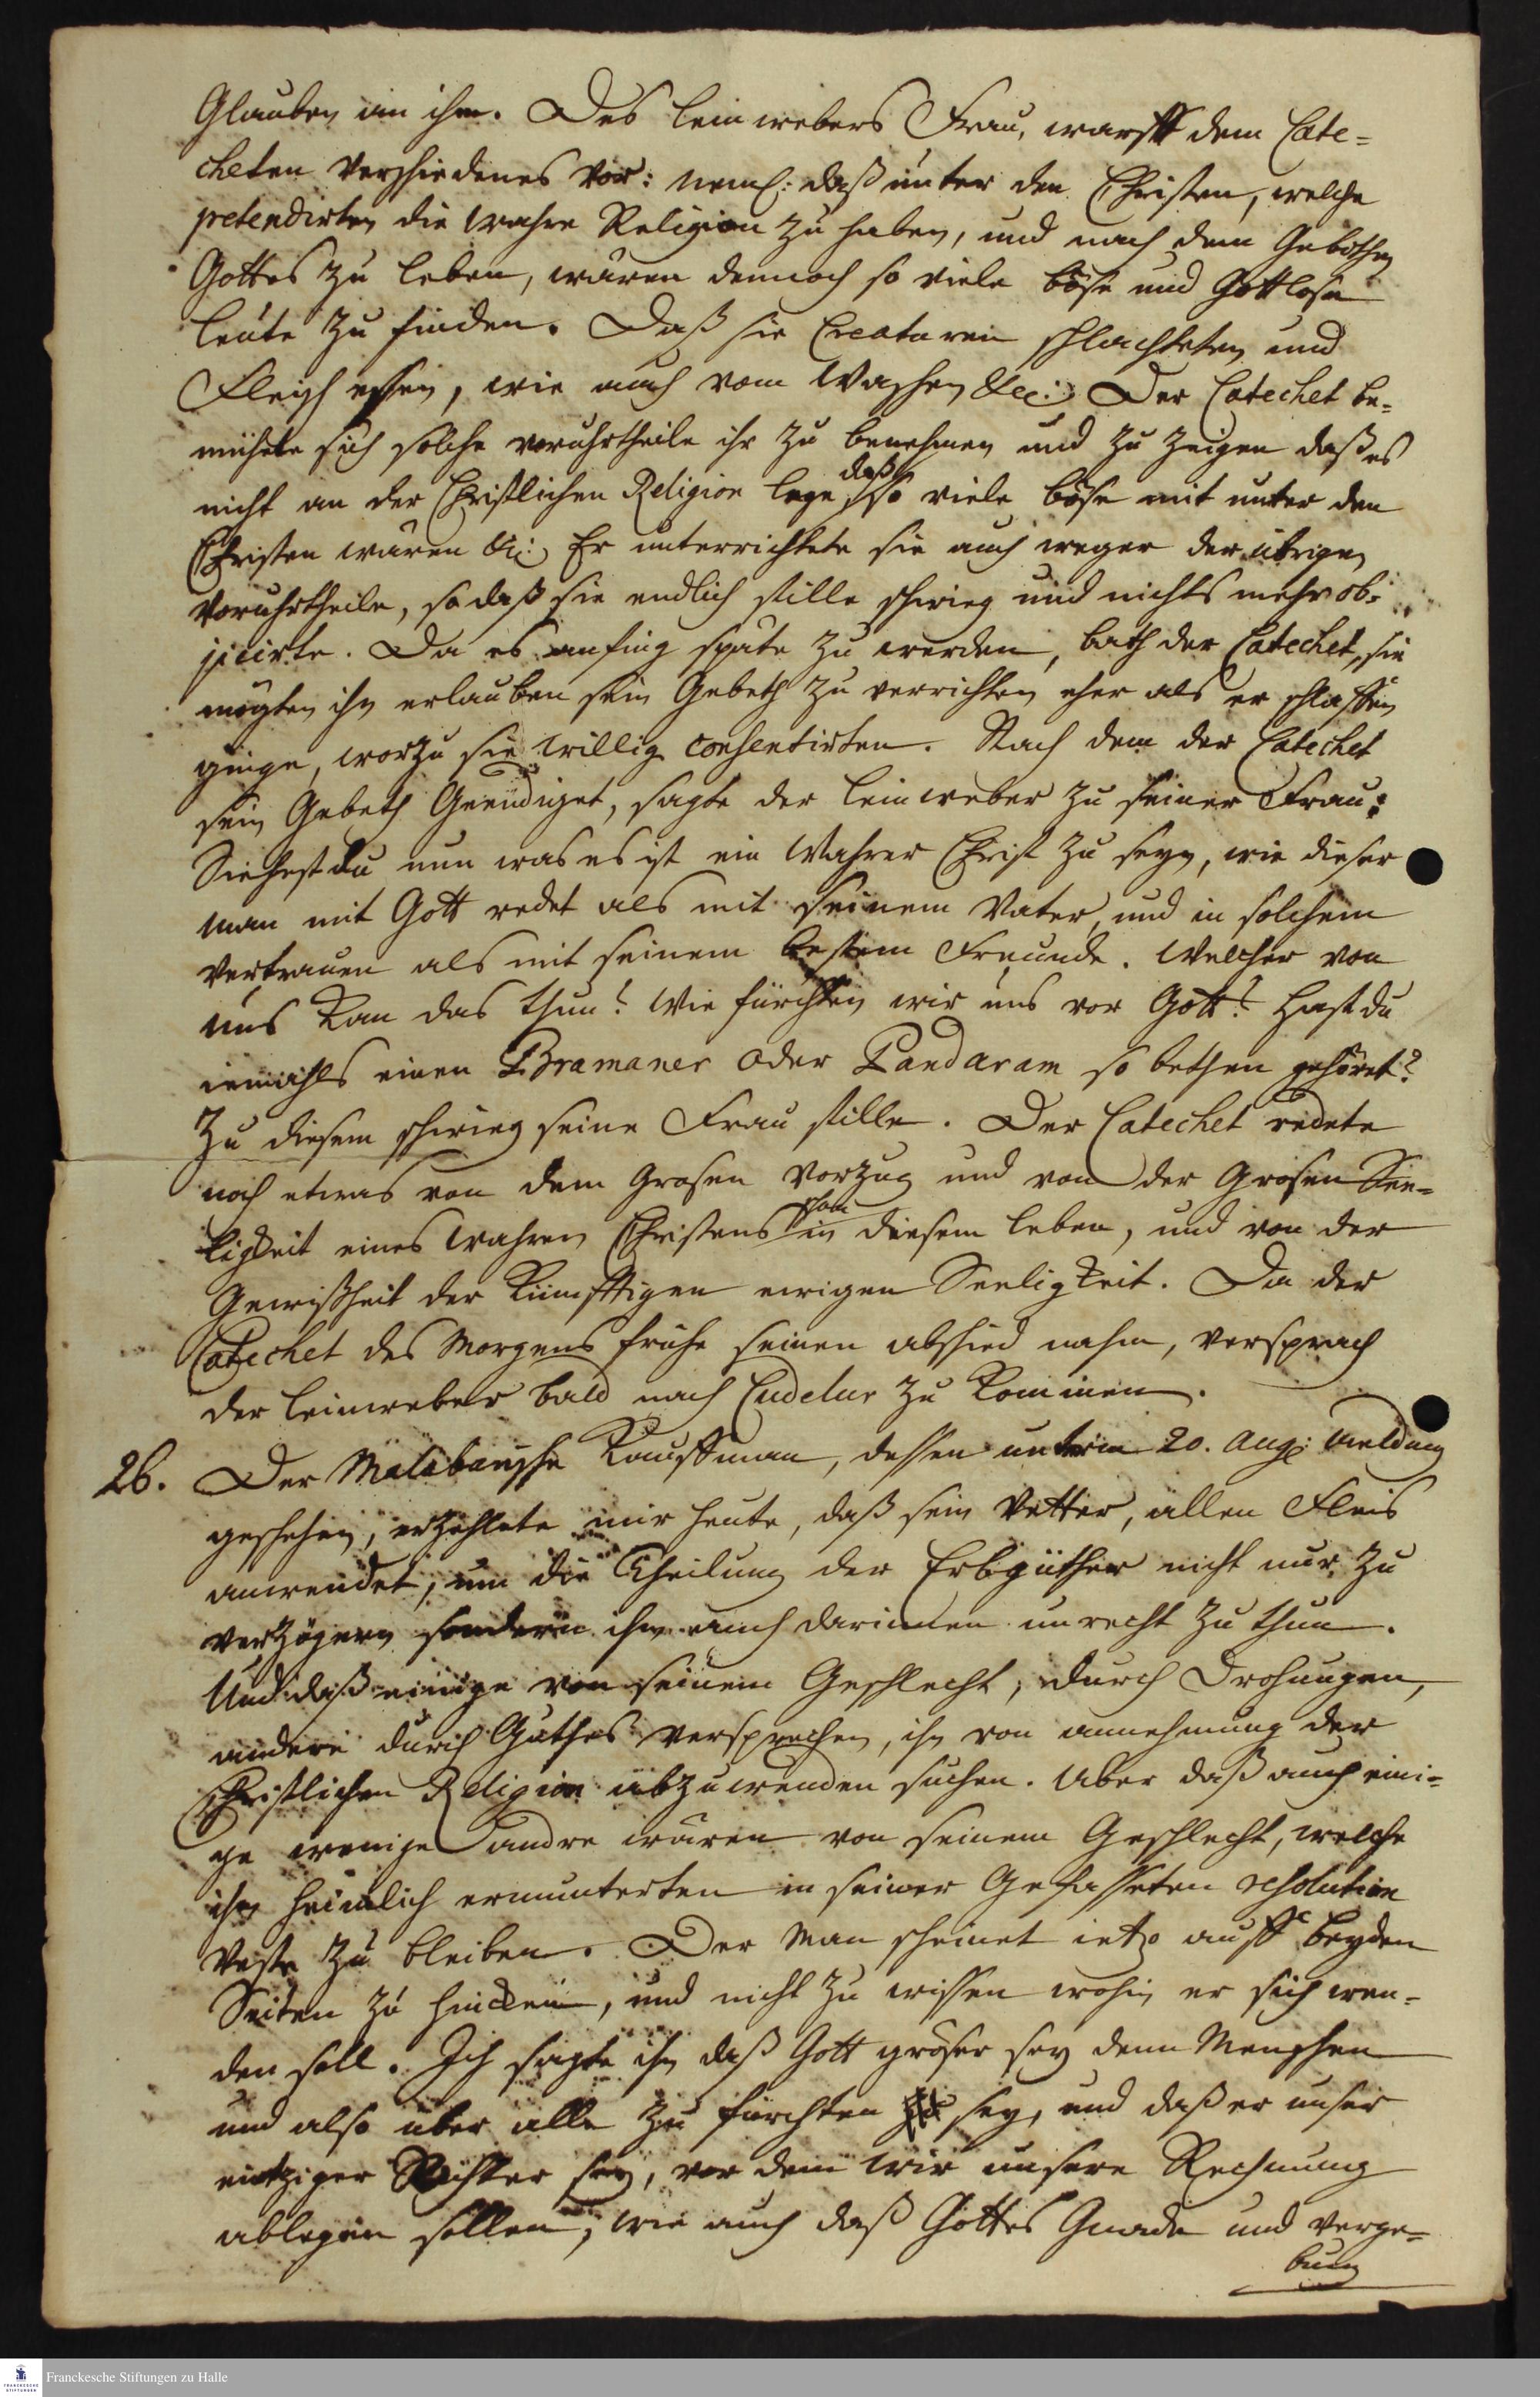 Glauben an ihm. Des leinwebers Frau, warff dem Cate=
cheten verschiedenes vor: neml: daß unter den Christen, welche
pretendirten die wahre Religion zu haben, und nach dem Gebothen
Gottes zu leben, wären dennoch so viele böse und Gottlose
leüte zu finden. Daß sie Creaturen schlachteten und
Fleisch essen, wie auch vom Waschen &c: Der Catechet be=
mühete sich solche voruhrtheile ihr zu benehmen und zu zeigen daß es
nicht an der Christlichen Religion lege daß so viele böse mit unter den
Christen wären &c: Er unterrichtete sie auch wegen der übrigen
Voruhrtheile, so daß sie endlich stille schwieg und nichts mehr ob=
jicirte. Da es anfing späte zu werden, bath der Catechet, sie
mögten ihn erlauben sein Gebeth zu verrichten eher als er schlaffen
ginge, worzu sie willig consentirten. Nach dem der Catechet
sein Gebeth Geendiget, sagte der leinweber zu seiner Frau:
Siehest du nun was es ist ein Wahrer Christ zu seyn, wie dieser
man mit Gott redet als mit seinem Vater, und in solchem
Vertrauen als mit seinem bestem Freunde. Welcher von
uns Kan das thun? Wie fürchten wir uns vor Gott? hast du
iemahls einen Bramaner oder Pandaram so bethen gehöret?
Zu diesem schwieg seine Frau stille. Der Catechet redete
noch etwas von dem Grosen Vorzug und von der Grosen See=
ligkeit eines wahren Christens schon in diesem leben, und von der
Gewißheit der Künfftigen ewigen Seeligkeit. Da der
Catechet des Morgens frühe seinen abschied nahm, versprach
der leinweber bald nach Cudelur zu Kommen.
26. Der Malabarische Kauffman, dessen unterm 20. Aug: meldung
geschehen, erzehlete mir heute, daß sein Vetter, allen Fleis
anwendet, um die Theilung der Erbgüther nicht nur zu
verzögern sondern ihm auch darinnen unrecht zu thun.
Und daß einige von seinem Geschlecht, durch Drohungen,
andere durch Guthes versprechen, ihn von annehmung der
Christlichen Religion abzuwenden suchen. Aber daß auch eini=
ge wenige andre wären von seinem Geschlecht, welche
ihn heimlich ermunterten in seiner Gefasseten resolution
Veste zu bleiben. Der Man scheinet ietzo auff beyden
Seiten zu hincken, und nicht zu wissen wohin er sich wen=
den soll. Ich sagte ihn daß Gott gröser sey denn Menschen
und also über alle zu fürchten sey, und daß er unser
eintziger Richter sey, vor dem wir unsere Rechnung
ablegen sollen, wie auch daß Gottes Gnade und verge=
bung
Franckesche Stiftungen zu Halle